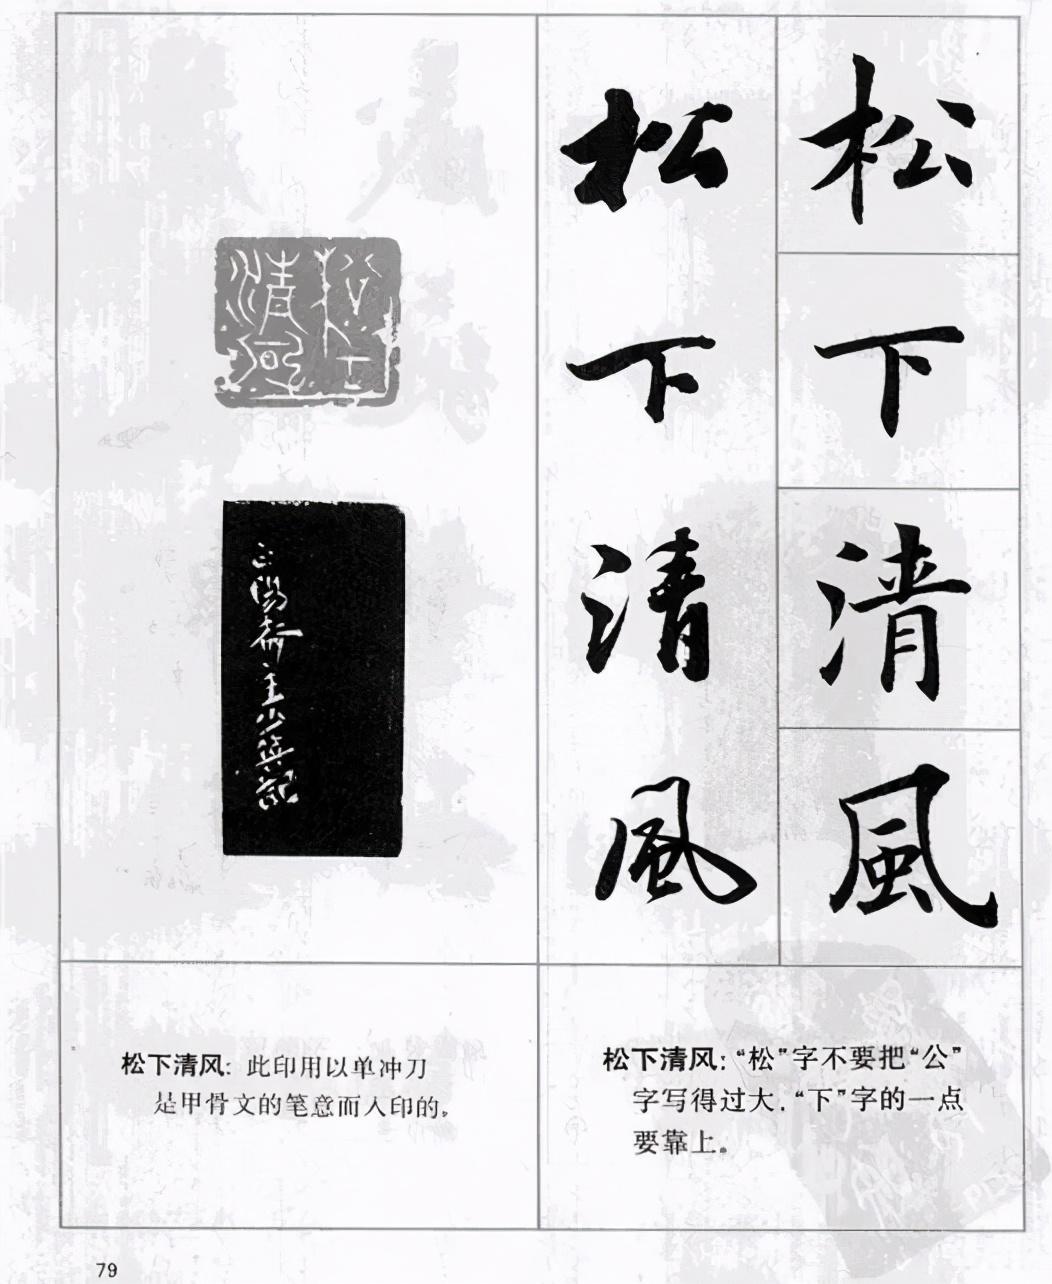 松
下
清
風
松
下
清
風
松下
清風
松下清风：此印用以单冲刀
是甲骨文的笔意而入印的。
松下清风：“松”字不要把“公”
字写得过大，“下”字的一点
要靠上。
79